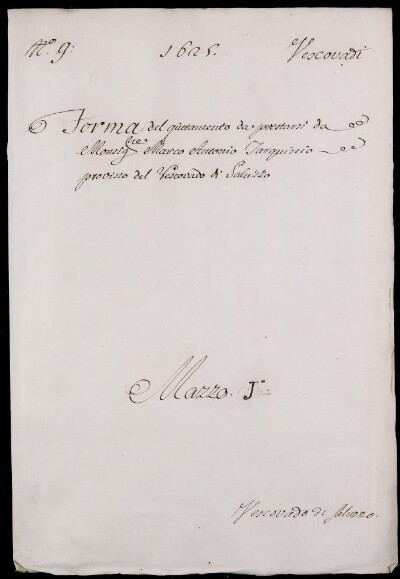 N.º 9: 1625. Vescovadi
Forma del giuramento da prestarsi da
Monsig.re Marco Antonio Tarquinio
proviso del Vescovado di Saluzzo
Mazzo. J.º
Vescovado di Saluzzo.